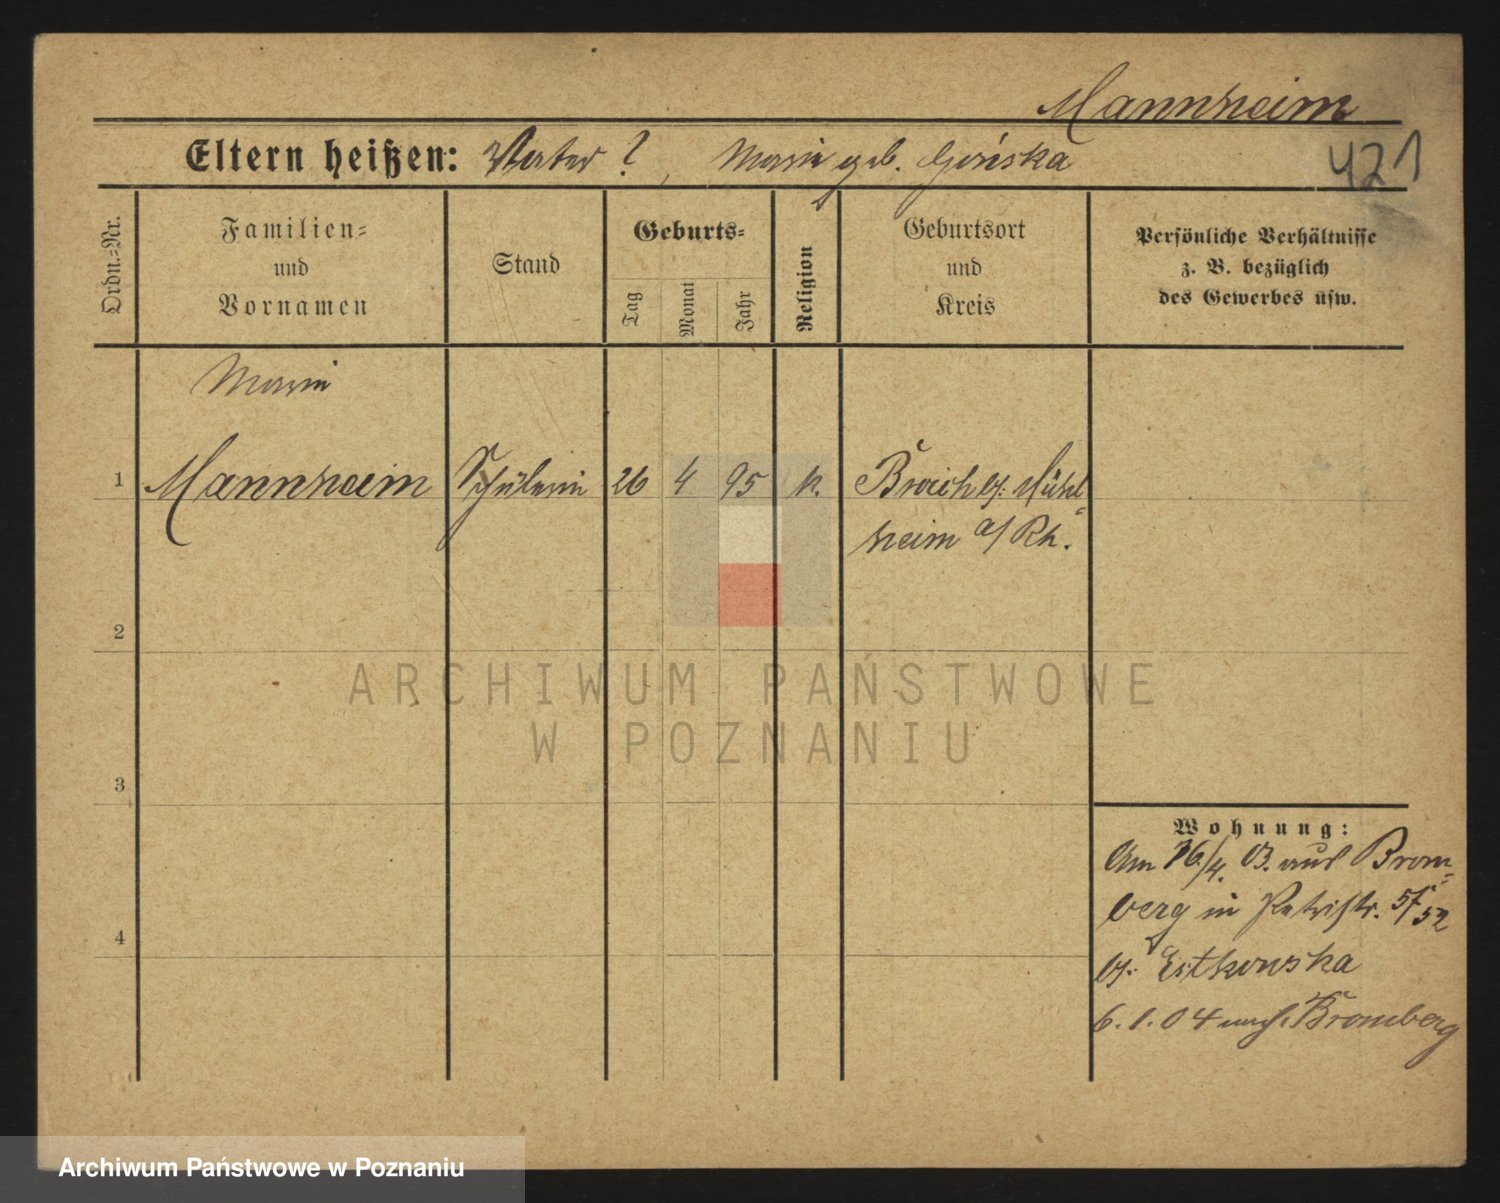 Mannheim
Eltern heißen: Vater ?, Marie geb. Goriska
421
Ordn.-Nr.
Familien-
und
Vornamen
Stand
Geburts-
Tag
Monat
Jahr
Religion
Geburtsort
und
Kreis
Persönliche Verhältnisse
z. B. bezüglich
des Gewerbes usw.
Marie
1 Mannheim Schülerin 26 4 95 k. Broich b/. Mühl-
heim a/ Rh.
2
3
4
Wohnung:
Am 16./4. 03. aus Brom-
berg in Petristr. 51/52
b/. Estkowska
6. 1. 04 nach Bromberg
ARCHIWUM PAŃSTWOWE
W POZNANIU
Archiwum Państwowe w Poznaniu